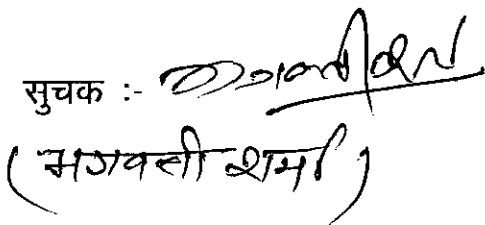 सुचक :-
(भगवती शर्मा)